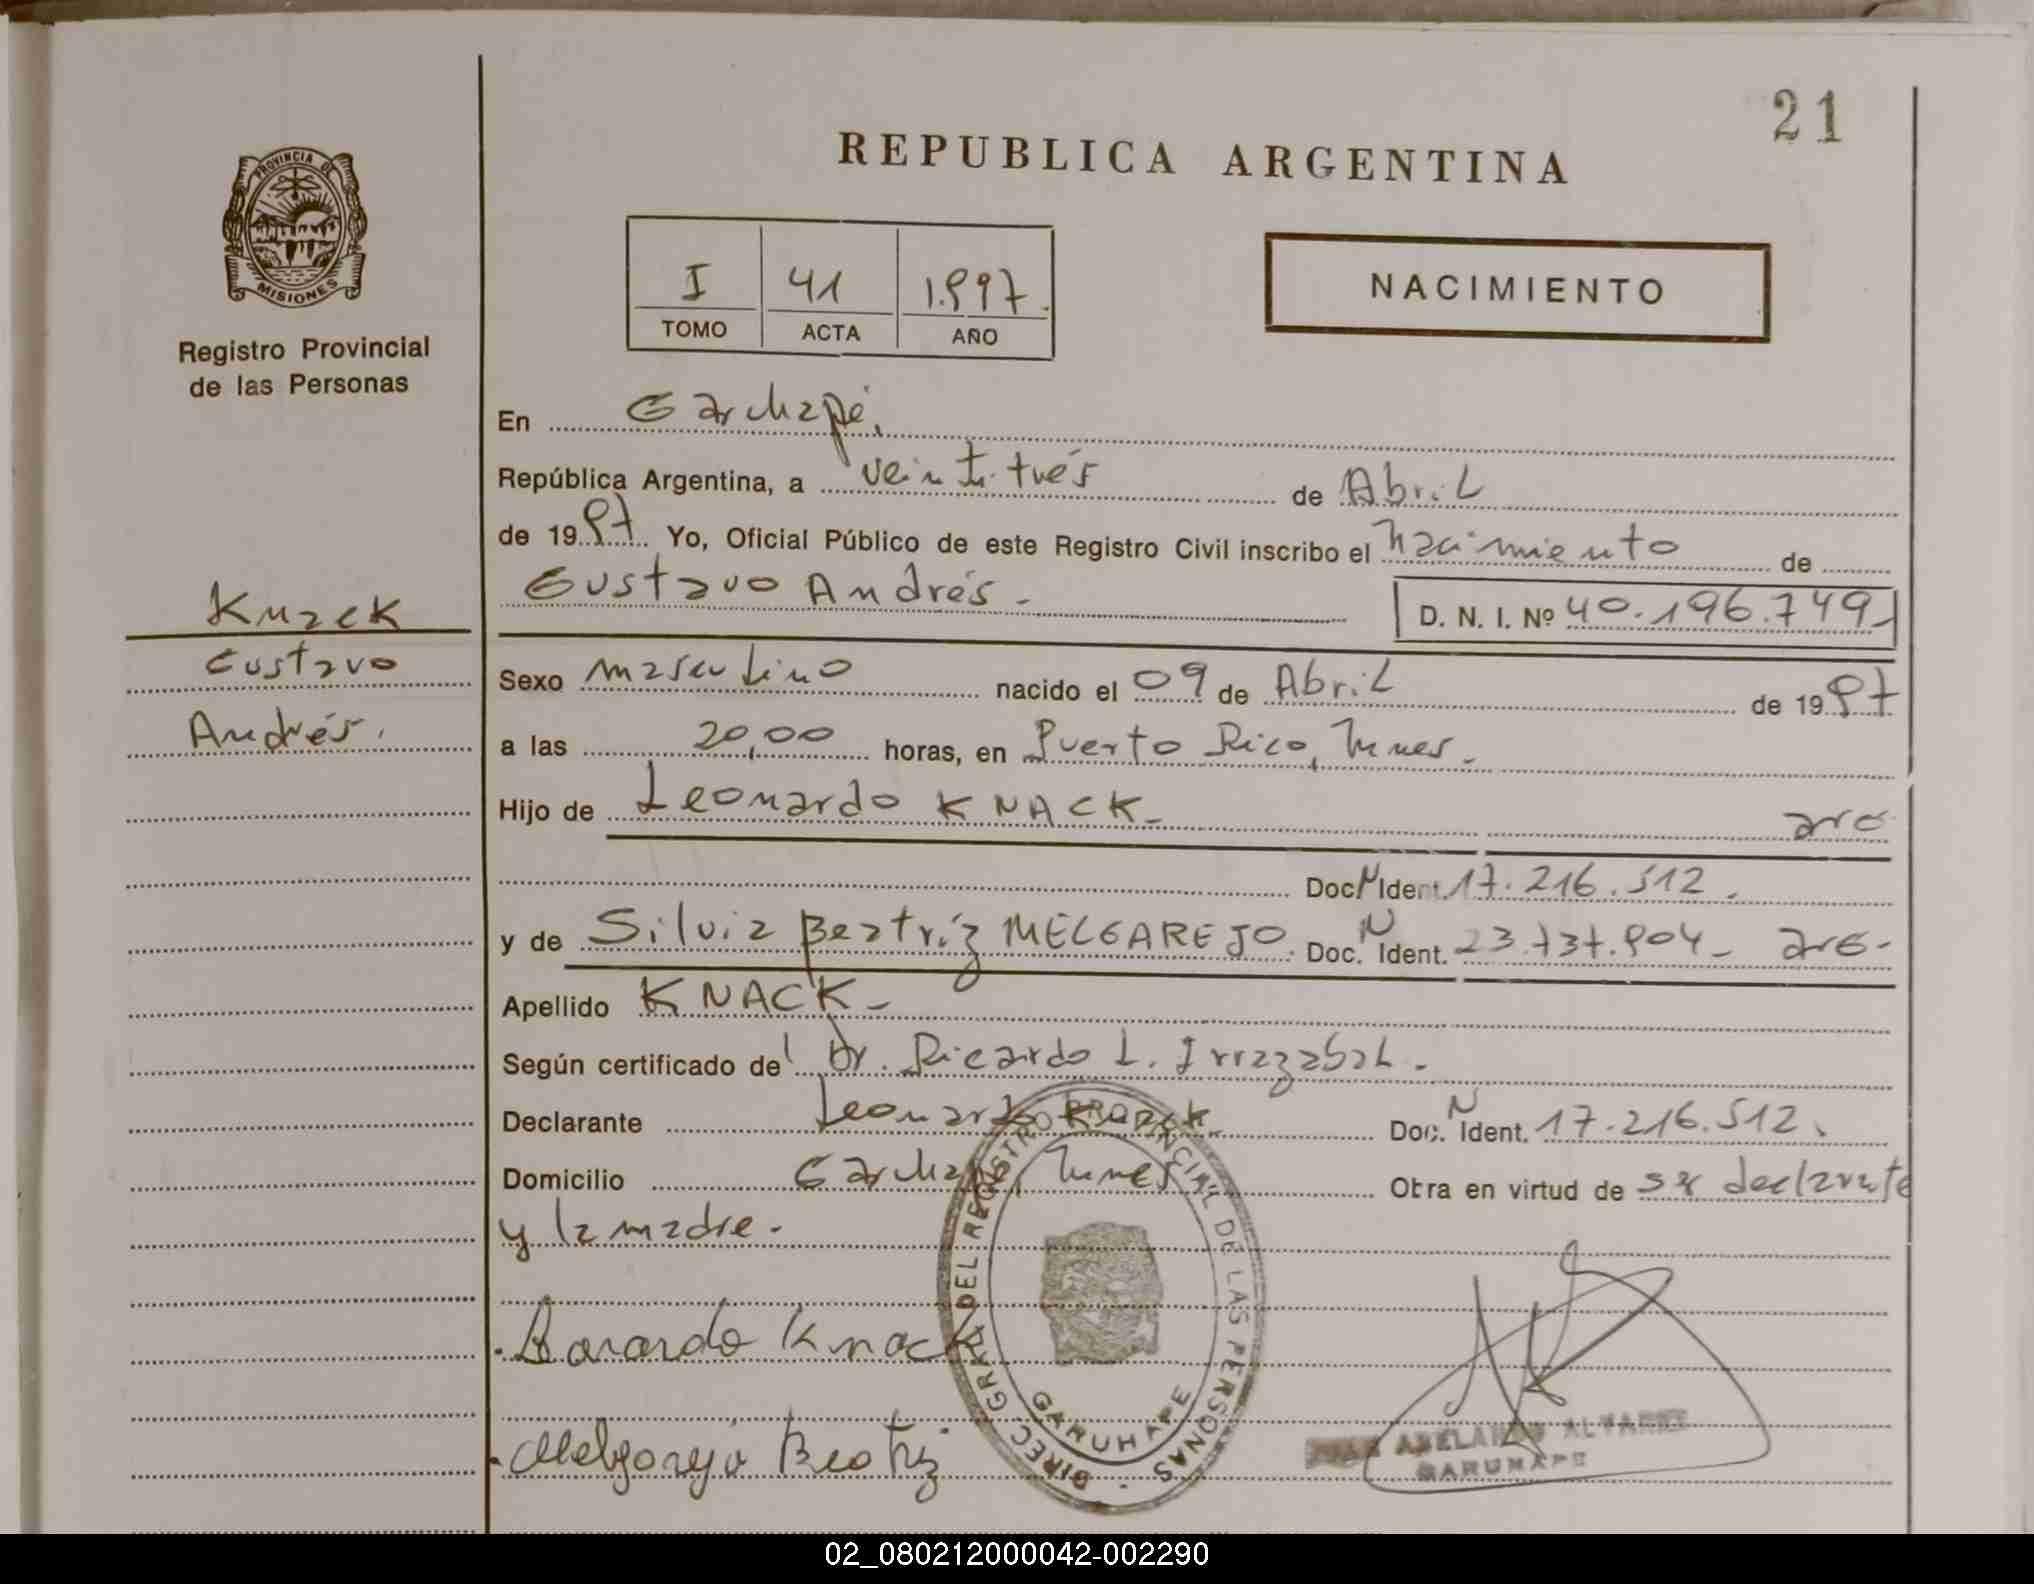 21
REPUBLICA ARGENTINA
PROVINCIA DE
MISIONES
Registro Provincial
de las Personas
I 41 1.997.
TOMO ACTA AÑO
NACIMIENTO
En Garuhapé,
República Argentina, a veintitrés de Abril
de 1997. Yo, Oficial Público de este Registro Civil inscribo el nacimiento de
Gustavo Andrés.-
D. N. I. Nº 40.196.749
Knack
Gustavo
Andrés.
Sexo masculino nacido el 09 de Abril de 1997
a las 20,00 horas, en Puerto Rico, Mnes.
Hijo de Leonardo KNACK- arg
Doc. N Ident. 17.216.512.
y de Silvia Beatríz MELGAREJO. Doc. N Ident. 23.737.904- arg-
Apellido KNACK-
Según certificado del Dr. Ricardo L. Irrazabal.
Declarante Leonardo Knack. Doc. N Ident. 17.216.512.
Domicilio Mnes Obra en virtud de ser declarante
y la madre.
Knack
Melgarejo Beatriz
DIREC. GRAL. DEL REGISTRO PROVINCIAL DE LAS PERSONAS
GARUHAPE
ABELARDO ALVAREZ
GARUHAPE
02_080212000042-002290